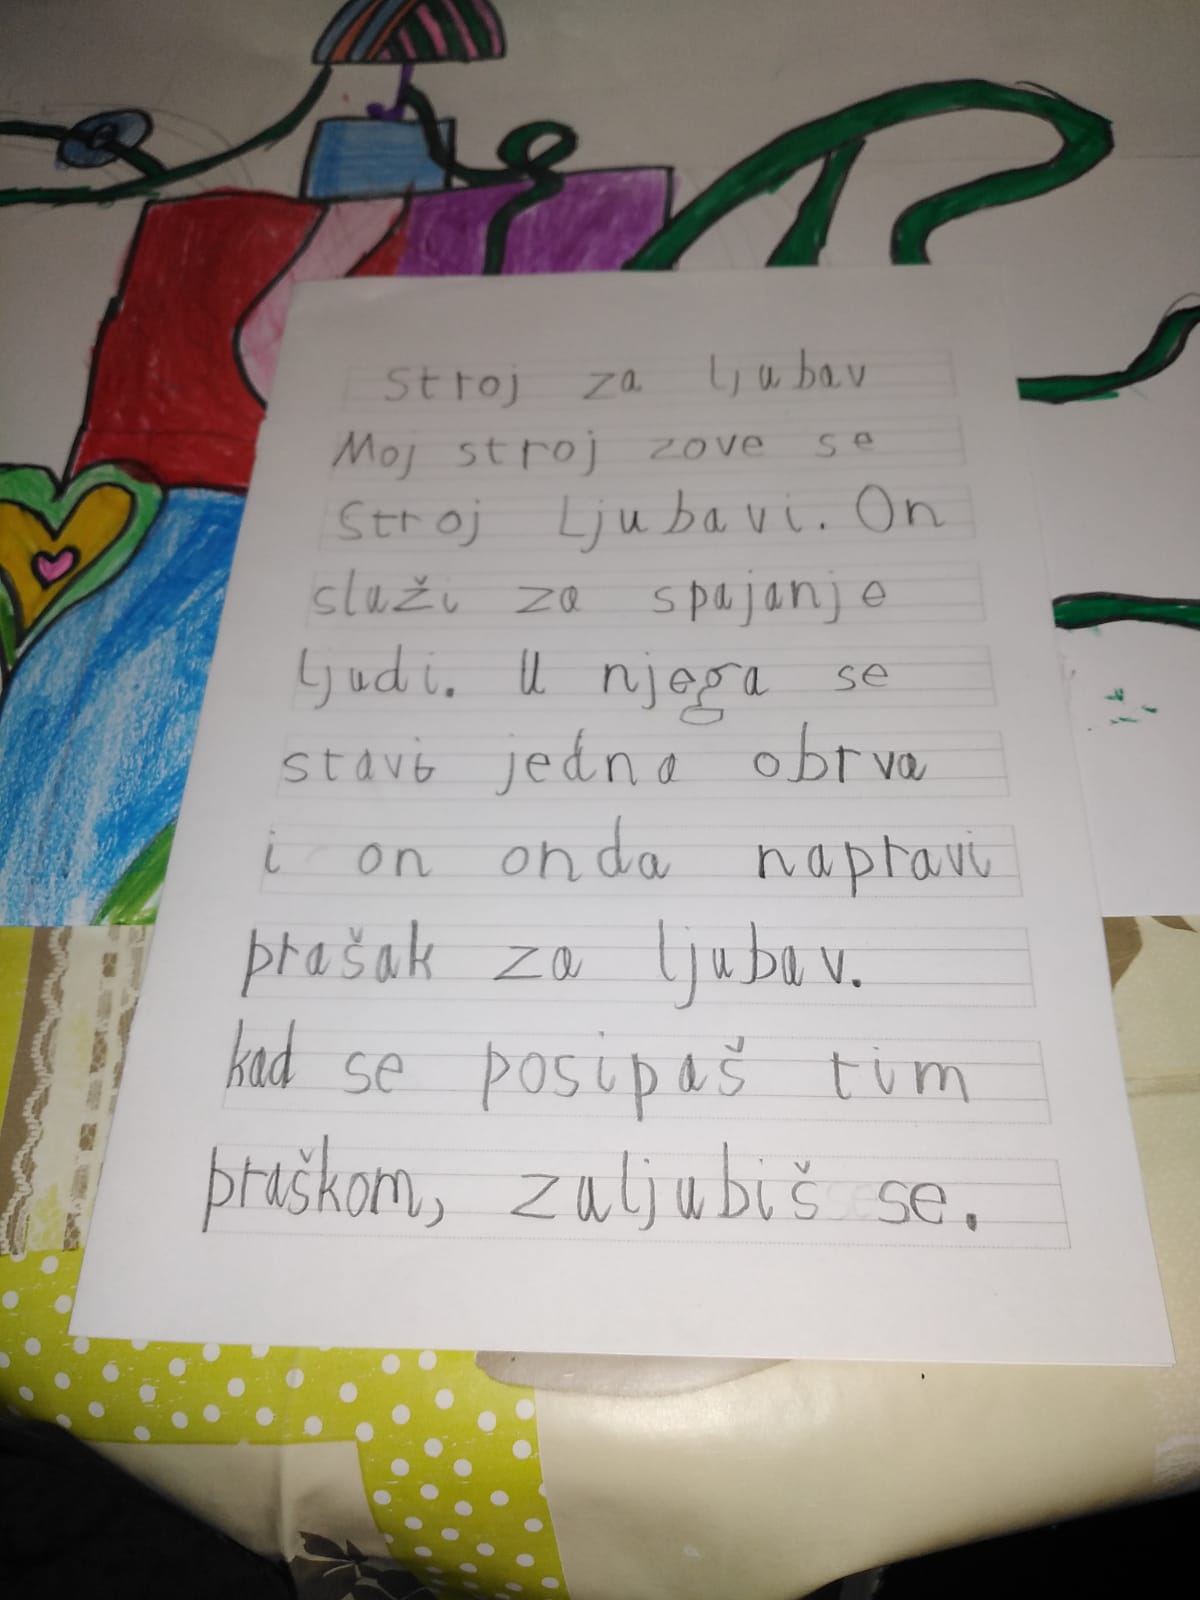 Stroj za ljubav
Moj stroj zove se
Stroj Ljubavi. On
služi za spajanje
Ljudi. U njega se
stavi jedna obrva
i on onda napravi
prašak za ljubav.
kad se posipaš tim
praškom, zaljubiš se.